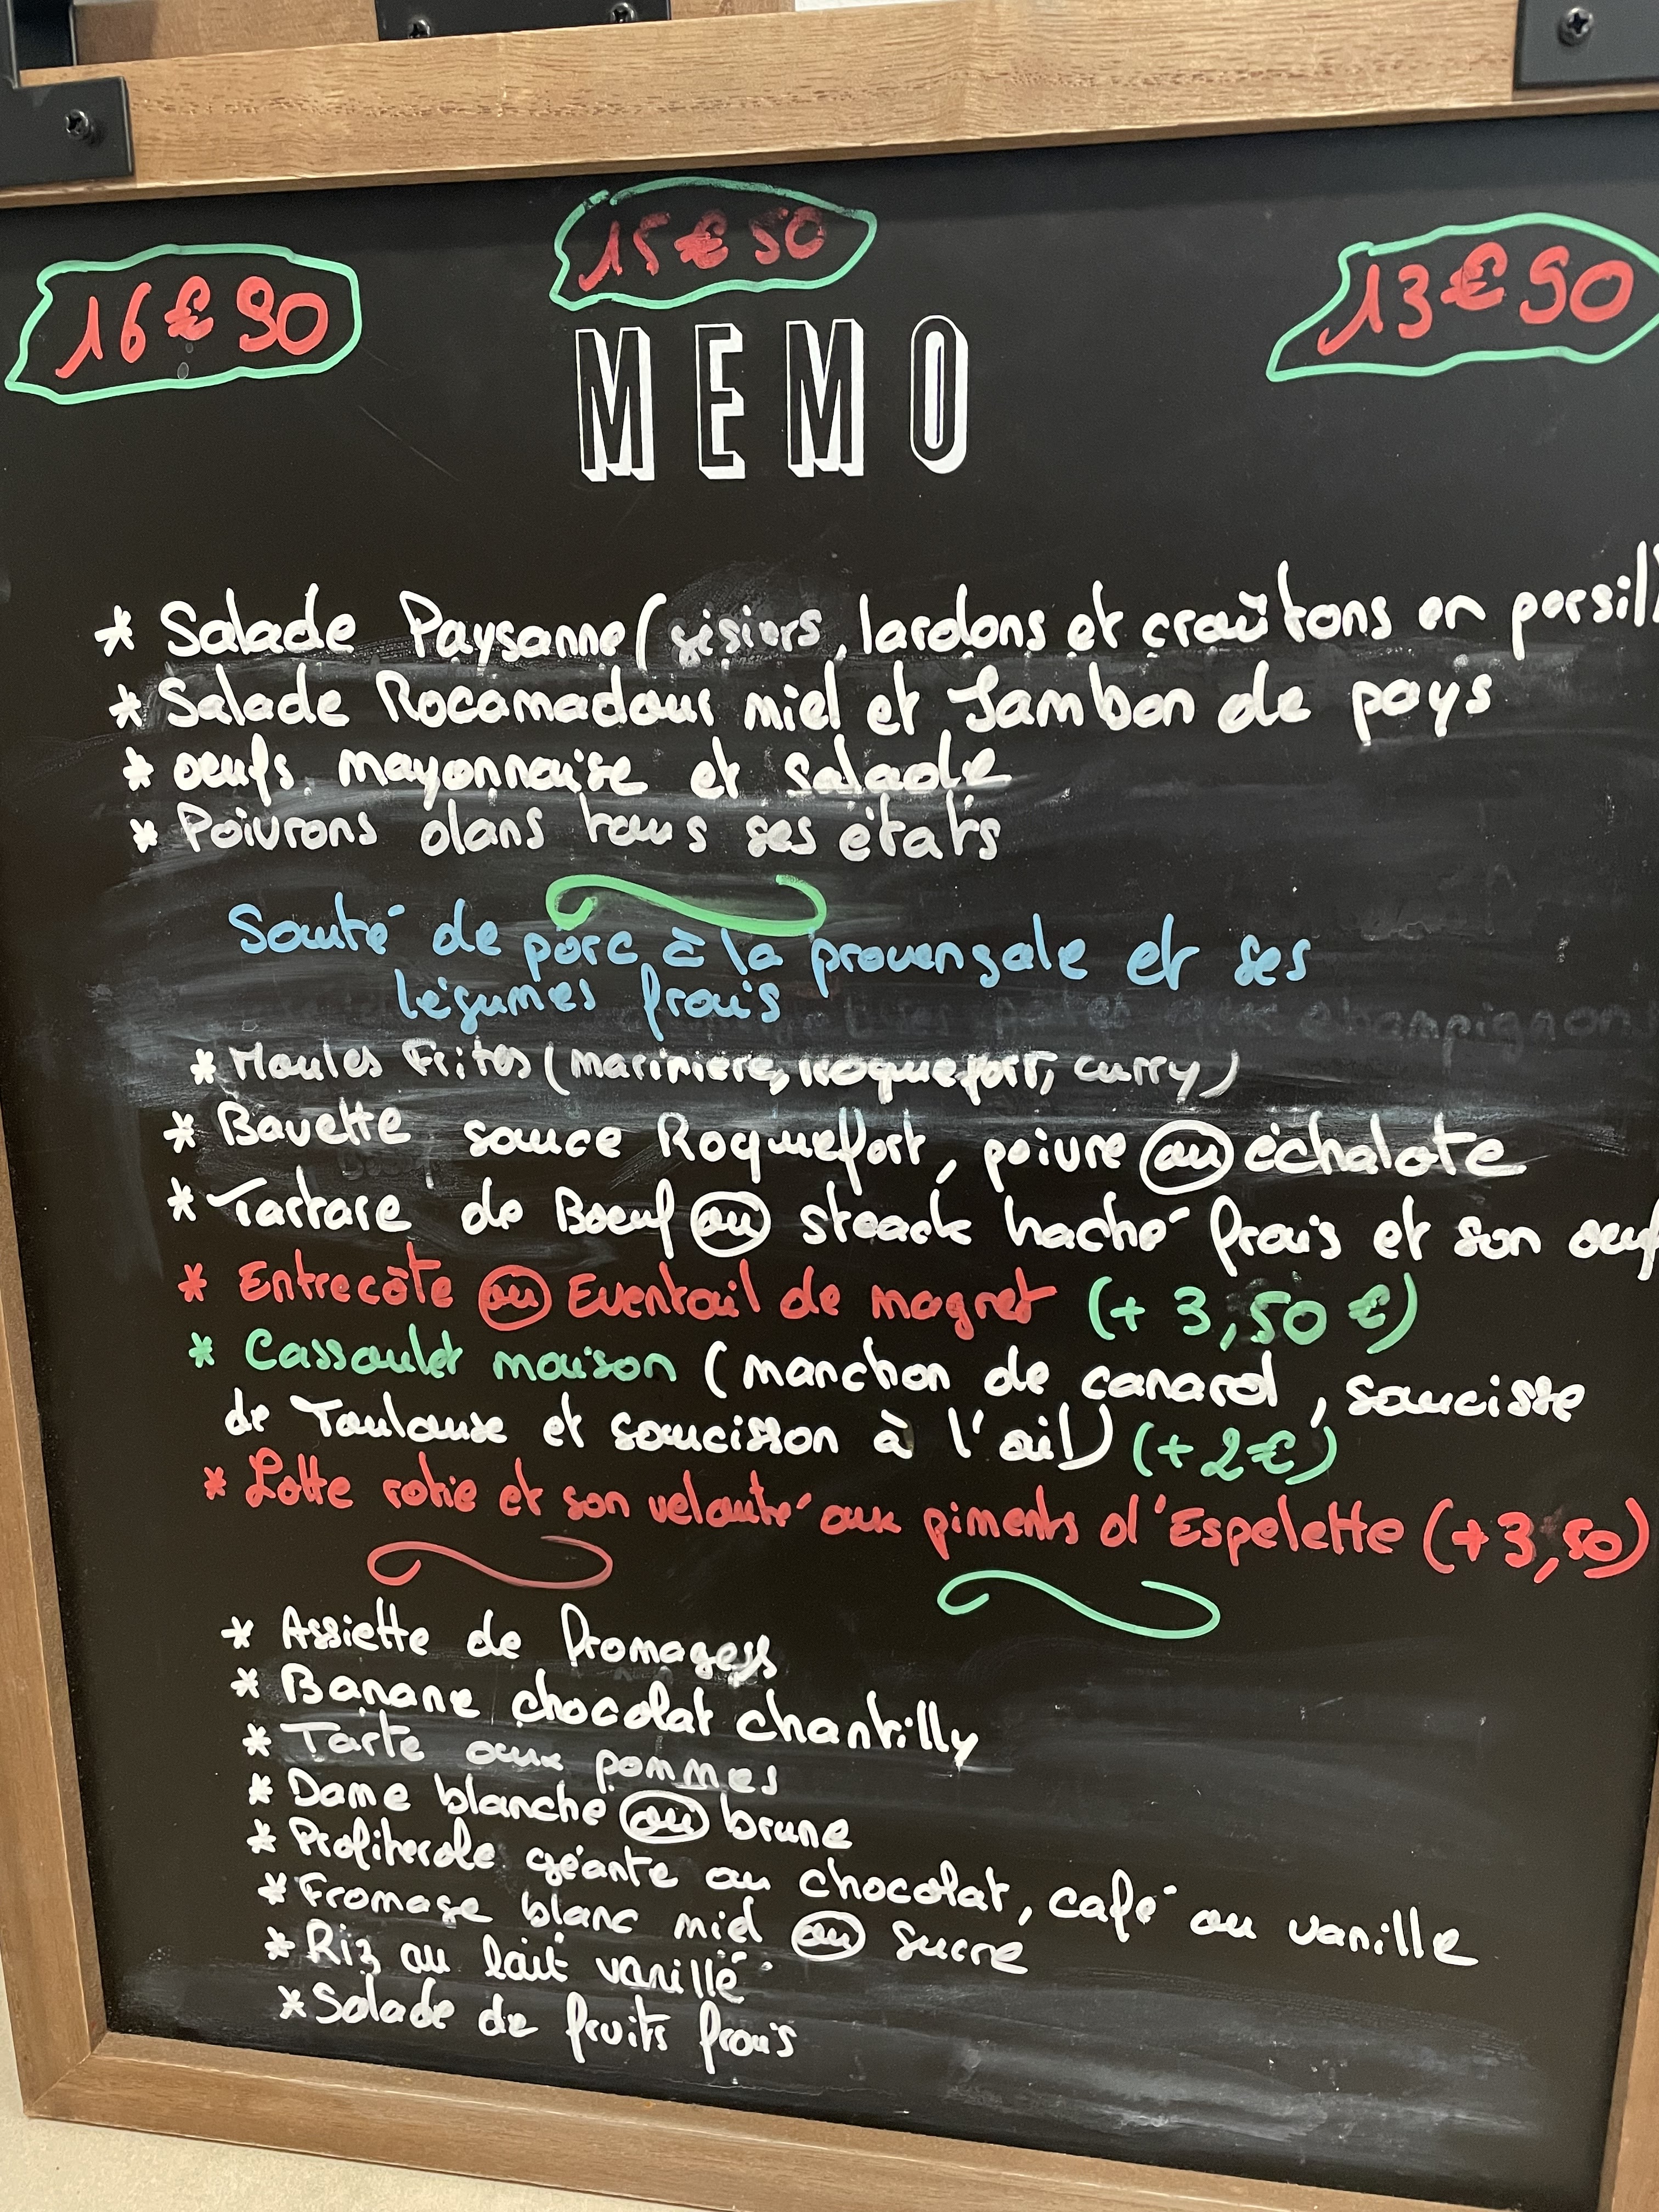 15€50
16€90
13€90
MEMO
* Salade Paysanne (gésiers, lardons et croûtons en persill
* Salade Rocamadour miel et Jambon de pays
* oeufs mayonnaise et salade
* Poivrons dans tous ses états
Sauté de porc à la provençale et ses
légumes frais
champignon
* Moules Frites (marinière, roquefort, curry)
* Bavette sauce Roquefort, poivre ou échalote
* Tartare de Boeuf ou steack haché frais et son oeuf
* Entrecôte ou Eventail de magret (+ 3,50 €)
* Cassoulet maison (manchon de canard, saucisse
de Toulouse et saucisson à l'ail) (+2€)
* Lotte rotie et son velouté aux piments d'Espelette (+3,50)
* Assiette de fromages
* Banane chocolat chantilly
* Tarte aux pommes
* Dame blanche ou brune
* Profiterole géante au chocolat, café ou vanille
* Fromage blanc miel ou sucre
* Riz au lait vanillé
* Salade de fruits frais